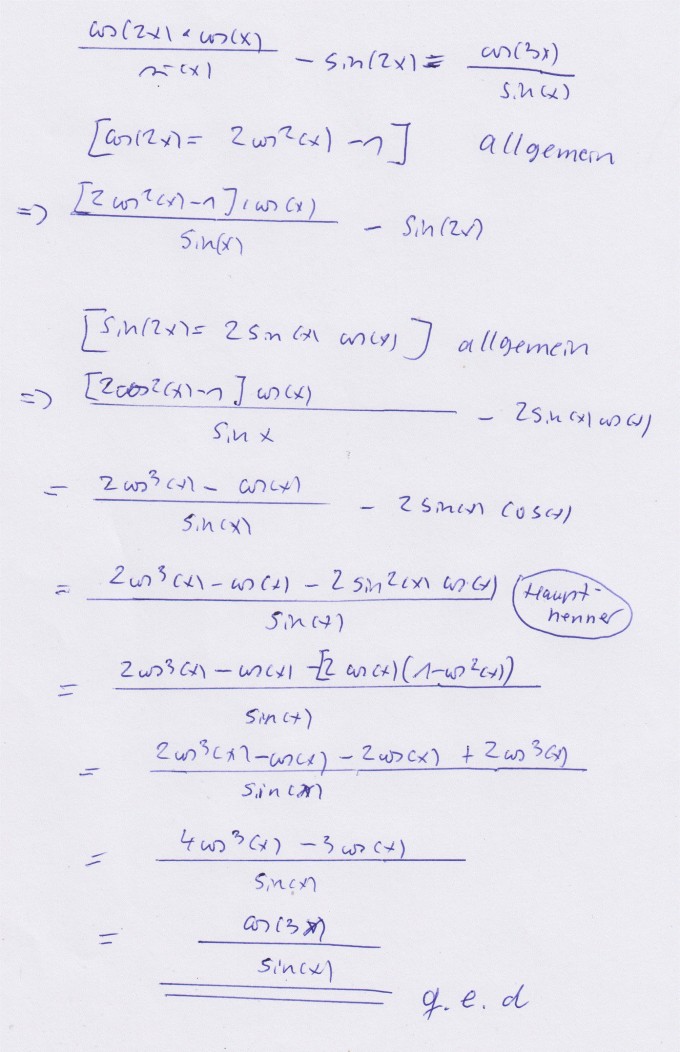 cos(2x) * cos(x) / sin(x) - sin(2x) = cos(3x) / sin(x)
[cos(2x) = 2cos²(x) - 1] allgemein
=> [2cos²(x) - 1] · cos(x) / sin(x) - sin(2x)
[sin(2x) = 2 sin(x) cos(x)] allgemein
=> [2cos²(x) - 1] cos(x) / sin x - 2 sin(x) cos(x)
= 2cos³(x) - cos(x) / sin(x) - 2 sin(x) cos(x)
= 2cos³(x) - cos(x) - 2 sin²(x) cos(x) / sin(x) Haupt-
nenner
= 2cos³(x) - cos(x) - [2 cos(x) (1 - cos²(x)) / sin(x)
= 2cos³(x) - cos(x) - 2cos(x) + 2cos³(x) / sin(x)
= 4cos³(x) - 3cos(x) / sin(x)
= cos(3x) / sin(x)
q.e.d